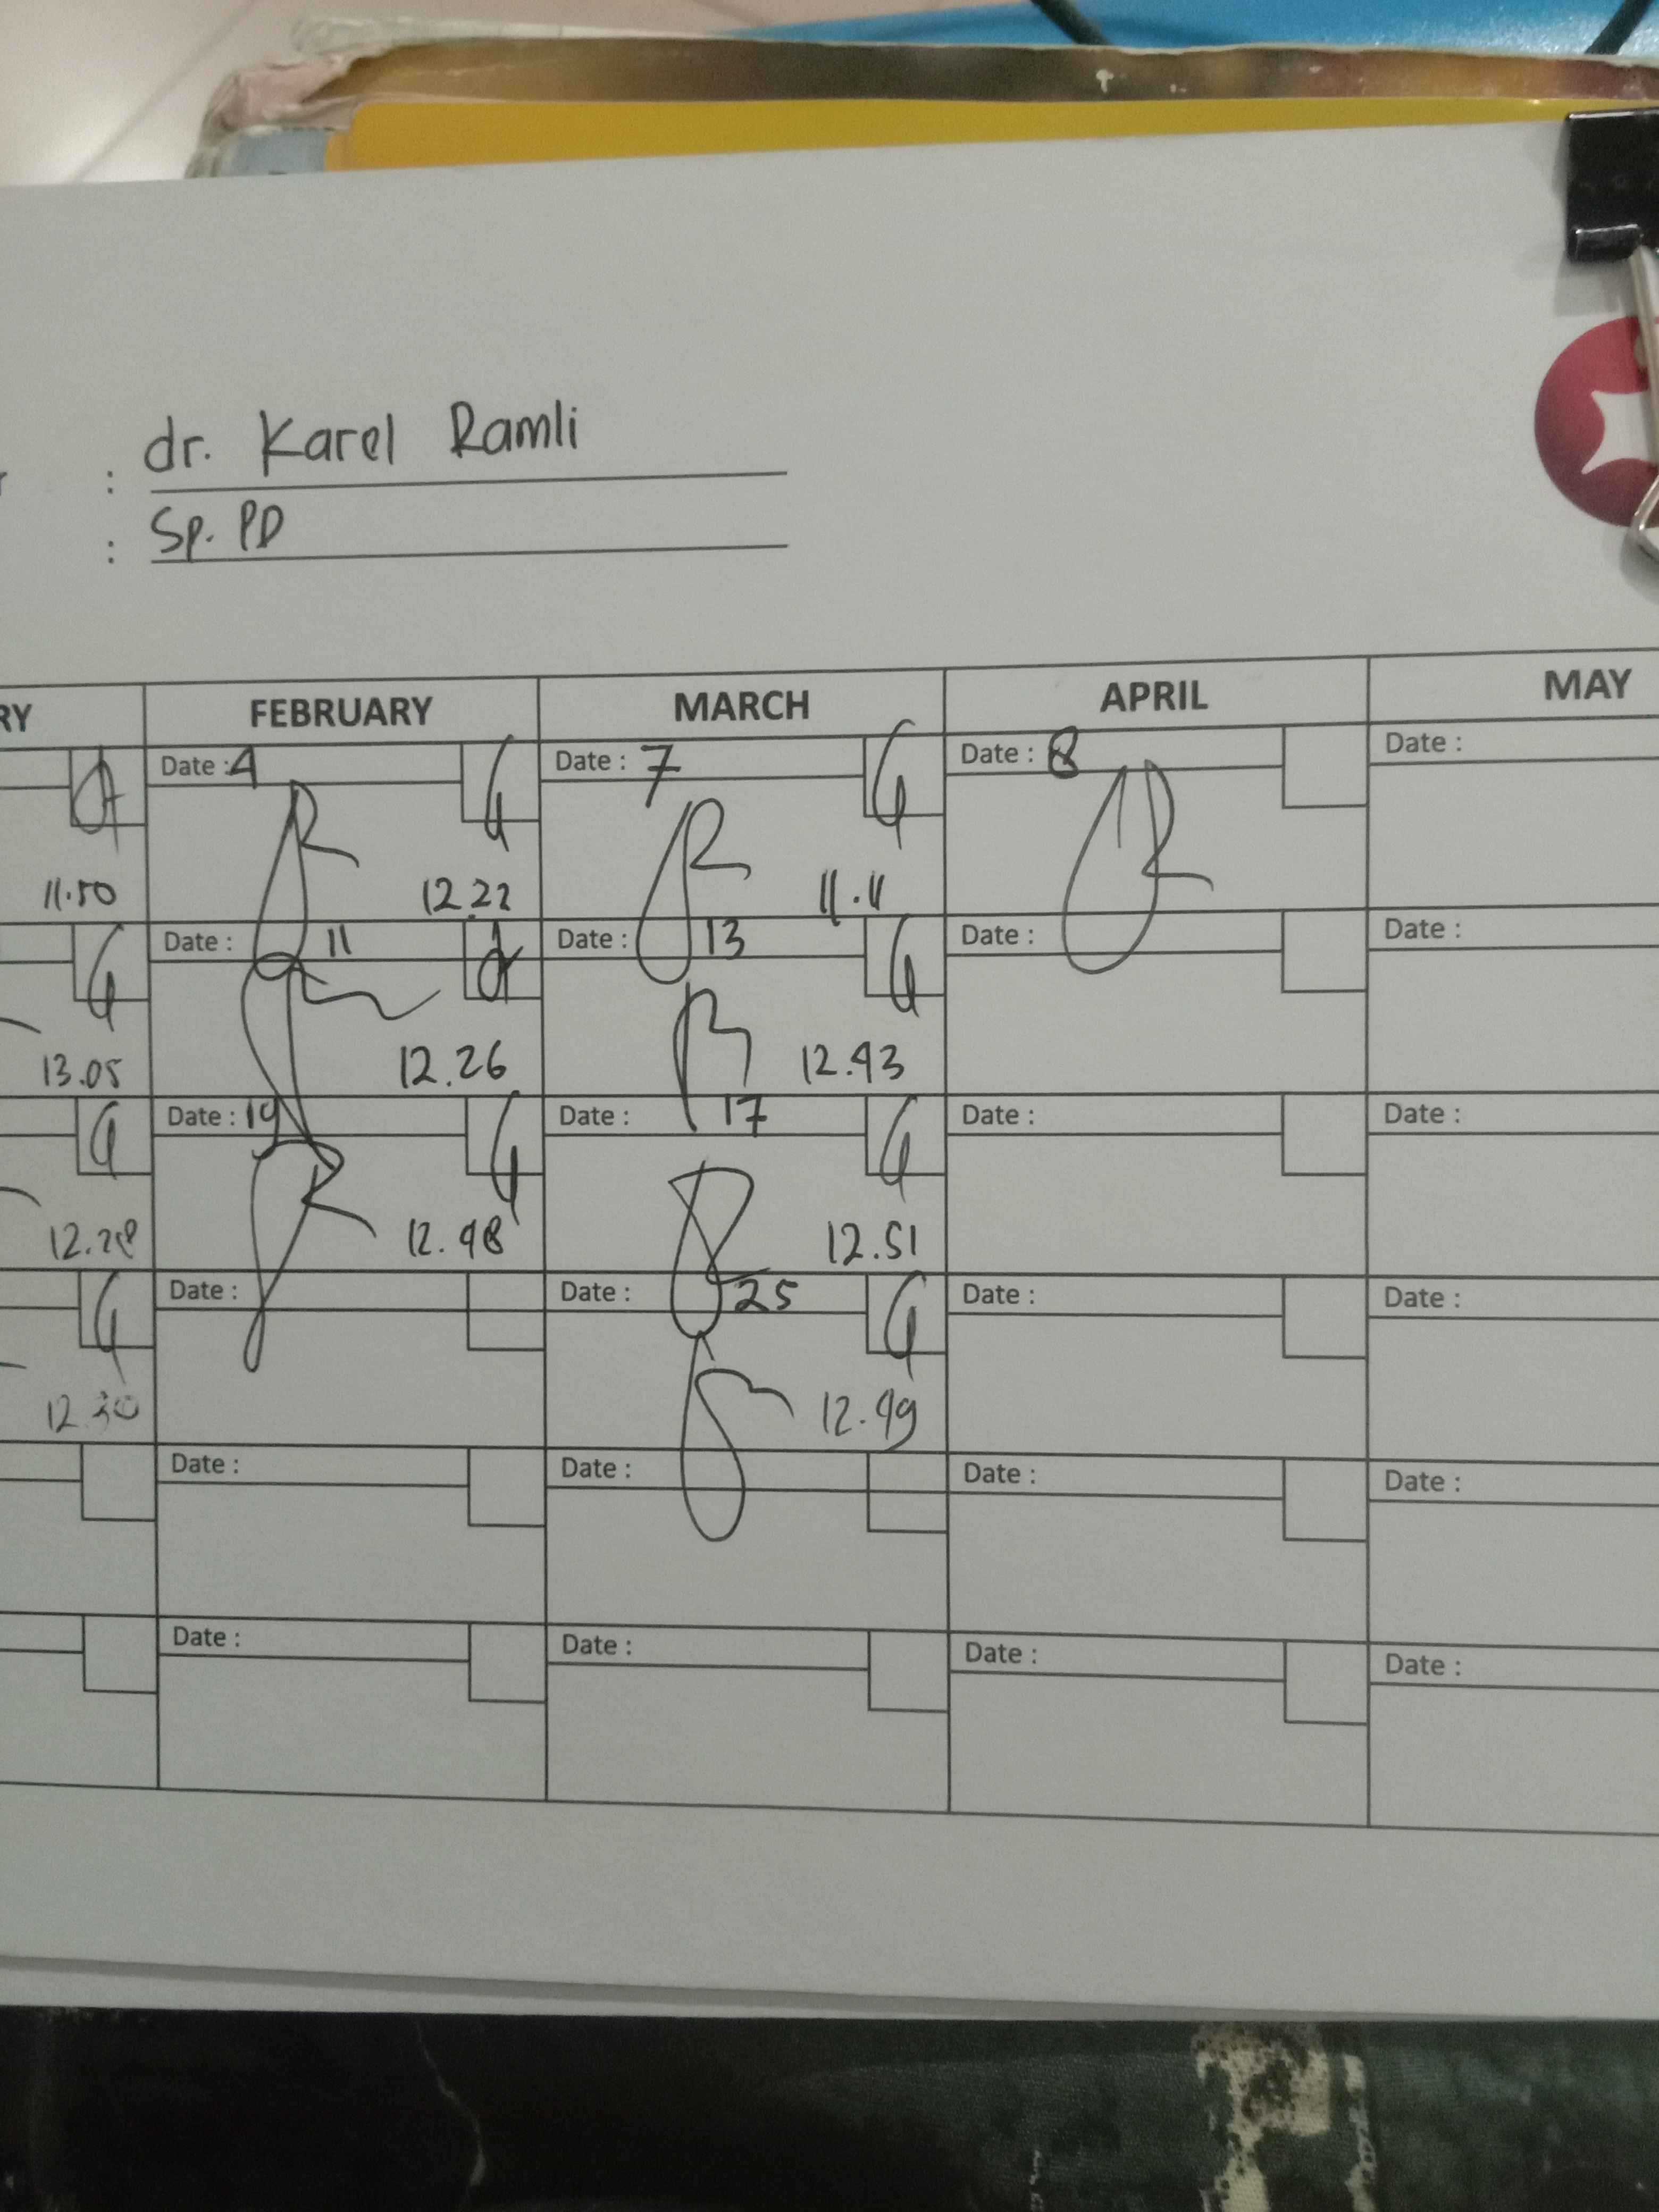 : dr. Karel Ramli
: Sp. PD
RY FEBRUARY MARCH APRIL MAY
Date : 4 Date : 7 Date : 8 Date :
11.50 12.22 11.11
Date : 11 Date : 13 Date : Date :
13.05 12.26 12.43
Date : 19 Date : 17 Date : Date :
12.48 12.51
Date : Date : 25 Date : Date :
12.30 12.49
Date : Date : Date : Date :
Date : Date : Date : Date :